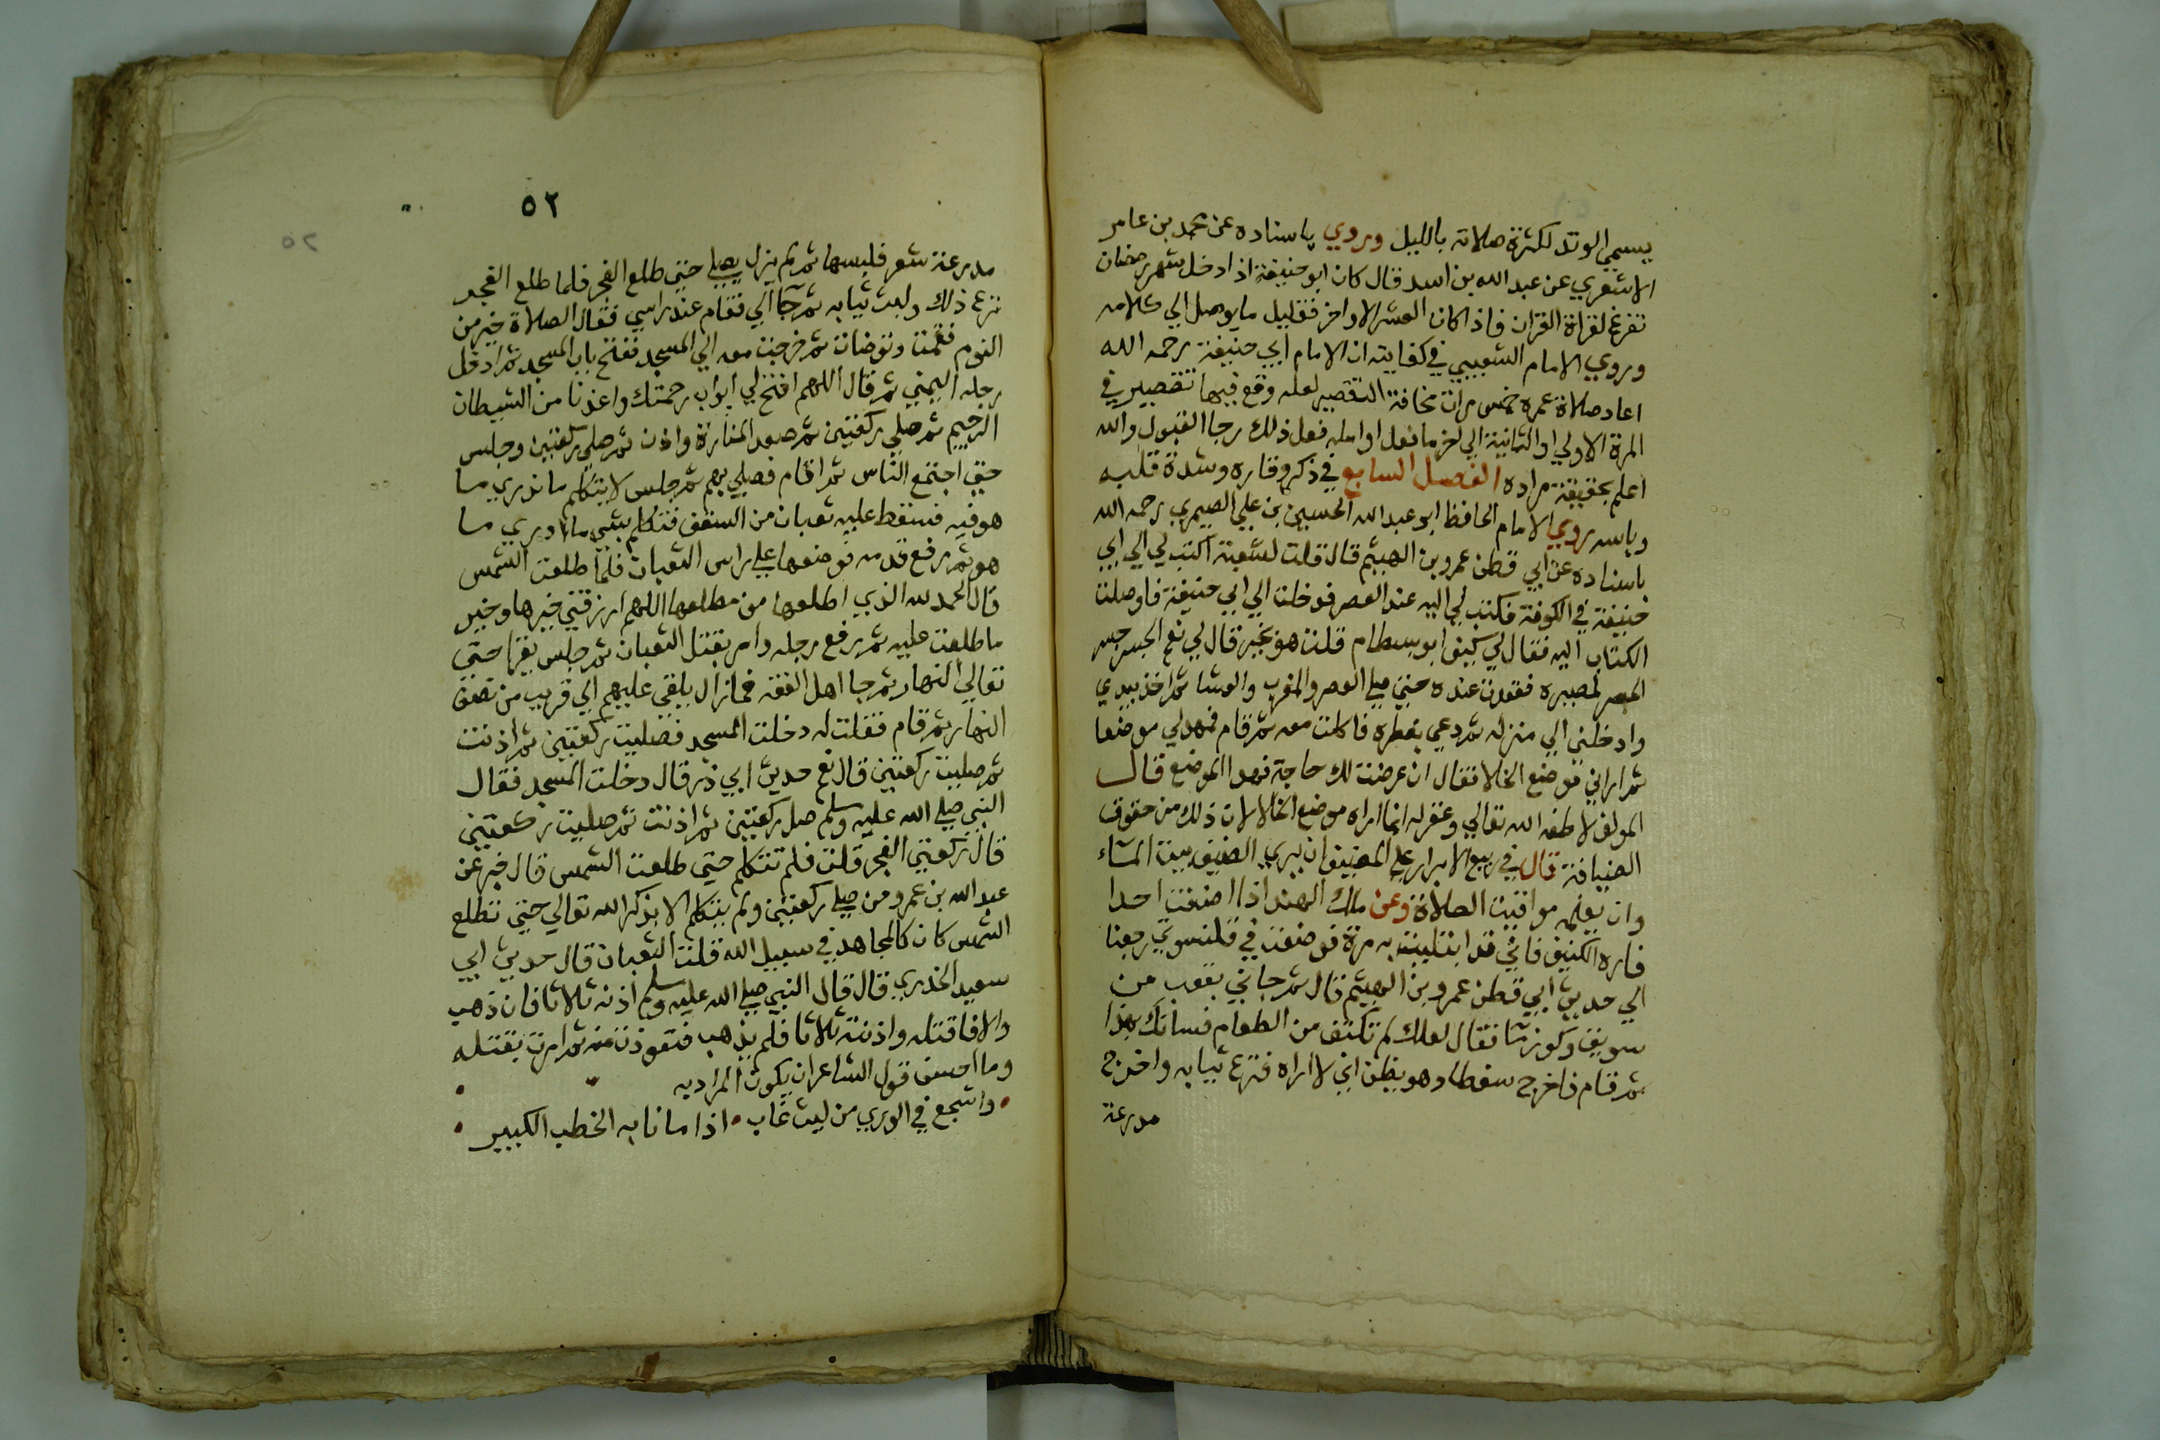 يسمي الوتد لكثرة صلاته بالليل وروي باسناده عن محمد بن عامر
الاشعري عن عبد الله بن اسد قال كان ابو حنيفة اذا دخل شهر رمضان
تفرغ لقراة القران فاذا كان العشر الاواخر فقليل ما يوصل الي كلامه
وروي الامام الشعيبي في كفايته ان الامام ابي حنيفة رحمه الله
اعاد صلاة عمره خمس مرات مخافة التقصير لعله وقع فيها تقصير في
المرة الاولي او الثانية الي اخر ما فعل اوامله فعل ذلك رجا القبول والله
اعلم بحقيقة مراده الفصل السابع في ذكر وقاره وشدة قلبه
وباسه روي الامام الحافظ ابو عبد الله الحسين بن علي الصيمري رحمه الله
باسناده عن ابي قطن عمرو بن الهيثم قال قلت لشعبة اكتب لي الي ابي
حنيفة في الكوفة فكتب لي اليه عند العصر فدخلت الي ابي حنيفة فاوصلت
الكتاب اليه فقال لي كيف ابو بسطام قلت هو بخير قال لي نعم الجسر جسر
المصر لمصيره فقعدت عنده حتي صلي العصر والمغرب والعشا ثم اخذ بيدي
وادخلني الي منزله ثم دعي بفطره فاكلت معه ثم قام فمهد لي موضعا
ثم اراني موضع الخلا فقال ان عرضت لك حاجة فهذا الموضع قال
المولف لاطفه الله تعالي وغفر له انما اراه موضع الخلا لان ذلك من حقوق
الضيافة قال في ربيع الابرار علي المضيف ان يري الضيف بيت الماء
وان يعلمه مواقيت الصلاة وعن ملك الهند اذا اضفت احدا
فاره الكنيف فاني قد ابتليت به مرة فوضعت في قلنسوتي رجعنا
الي حديث ابي قطن عمرو بن الهيثم قال ثم جاني بقعب من
سويق وكوز ما فقال لعلك لم تكتف من الطعام فسانك بهذا
ثم قام فاخرج سفطا وهو يظن اني لا اراه فنزع ثيابه واخرج
مدرعة
٥٢
٥٢
مدرعة شعر فلبسها ثم لم يزل يصلي حتي طلع الفجر فلما طلع الفجر
نزع ذلك ولبس ثيابه ثم جا الي فقام عند راسي فقال الصلاة خير من
النوم فقمت وتوضات ثم خرجت معه الي المسجد ففتح باب المسجد ثم ادخل
رجله اليمني ثم قال اللهم افتح لي ابواب رحمتك واعذنا من الشيطان
الرجيم ثم صلي ركعتين ثم صعد المنارة واذن ثم صلي ركعتين وجلس
حتي اجتمع الناس ثم اقام فصلي بهم ثم جلس لا يتكلم ما ندري ما
هو فيه فسقط عليه ثعبان من السقف فتكلم بشي ما ادري ما
هو ثم رفع قدمه فوضعها علي راس الثعبان فلما طلعت الشمس
قال الحمد لله الذي اطلعها من مطلعها اللهم ارزقني خيرها وخير
ما طلعت عليه ثم رفع رجله وامر بقتل الثعبان ثم جلس يقرا حتي
تعالي النهار ثم جا اهل الفقه فما زال يلقي عليهم الي قريب من نصف
النهار ثم قام فقلت له دخلت المسجد فصليت ركعتين ثم اذنت
ثم صليت ركعتين قال نعم حديث ابي ذر قال دخلت المسجد فقال
النبي صلي الله عليه وسلم صل ركعتين ثم اذنت ثم صليت ركعتين
قال ركعتي الفجر قلت فلم تتكلم حتي طلعت الشمس قال خبر عن
عبد الله بن عمرو من صلي ركعتين ولم يتكلم الا بذكر الله تعالي حتي تطلع
الشمس كان كالمجاهد في سبيل الله قلت الثعبان قال حديث ابي
سعيد الخدري قال قال النبي صلي الله عليه وسلم اذنه ثلاثا فان ذهب
والا فاقتله واذنته ثلاثا فلم يذهب فتعوذت منه ثم امرت بقتله
وما احسن قول الشاعر ان يكون المراد به
واشجع في الوري من ليث غاب اذا ما نابه الخطب الكبير